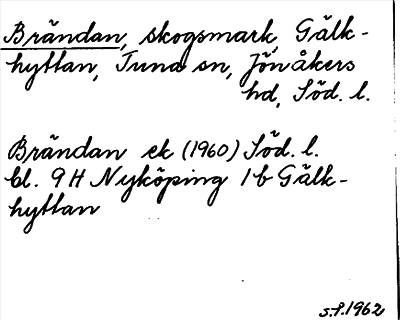 Brändan, skogsmark, Gälk-
hyttan, Tuna sn, Jönåkers
hd, Söd. l.
Brändan ek (1960) Söd. l.
bl. 9H Nyköping 1b Gälk-
hyttan
s.f. 1962